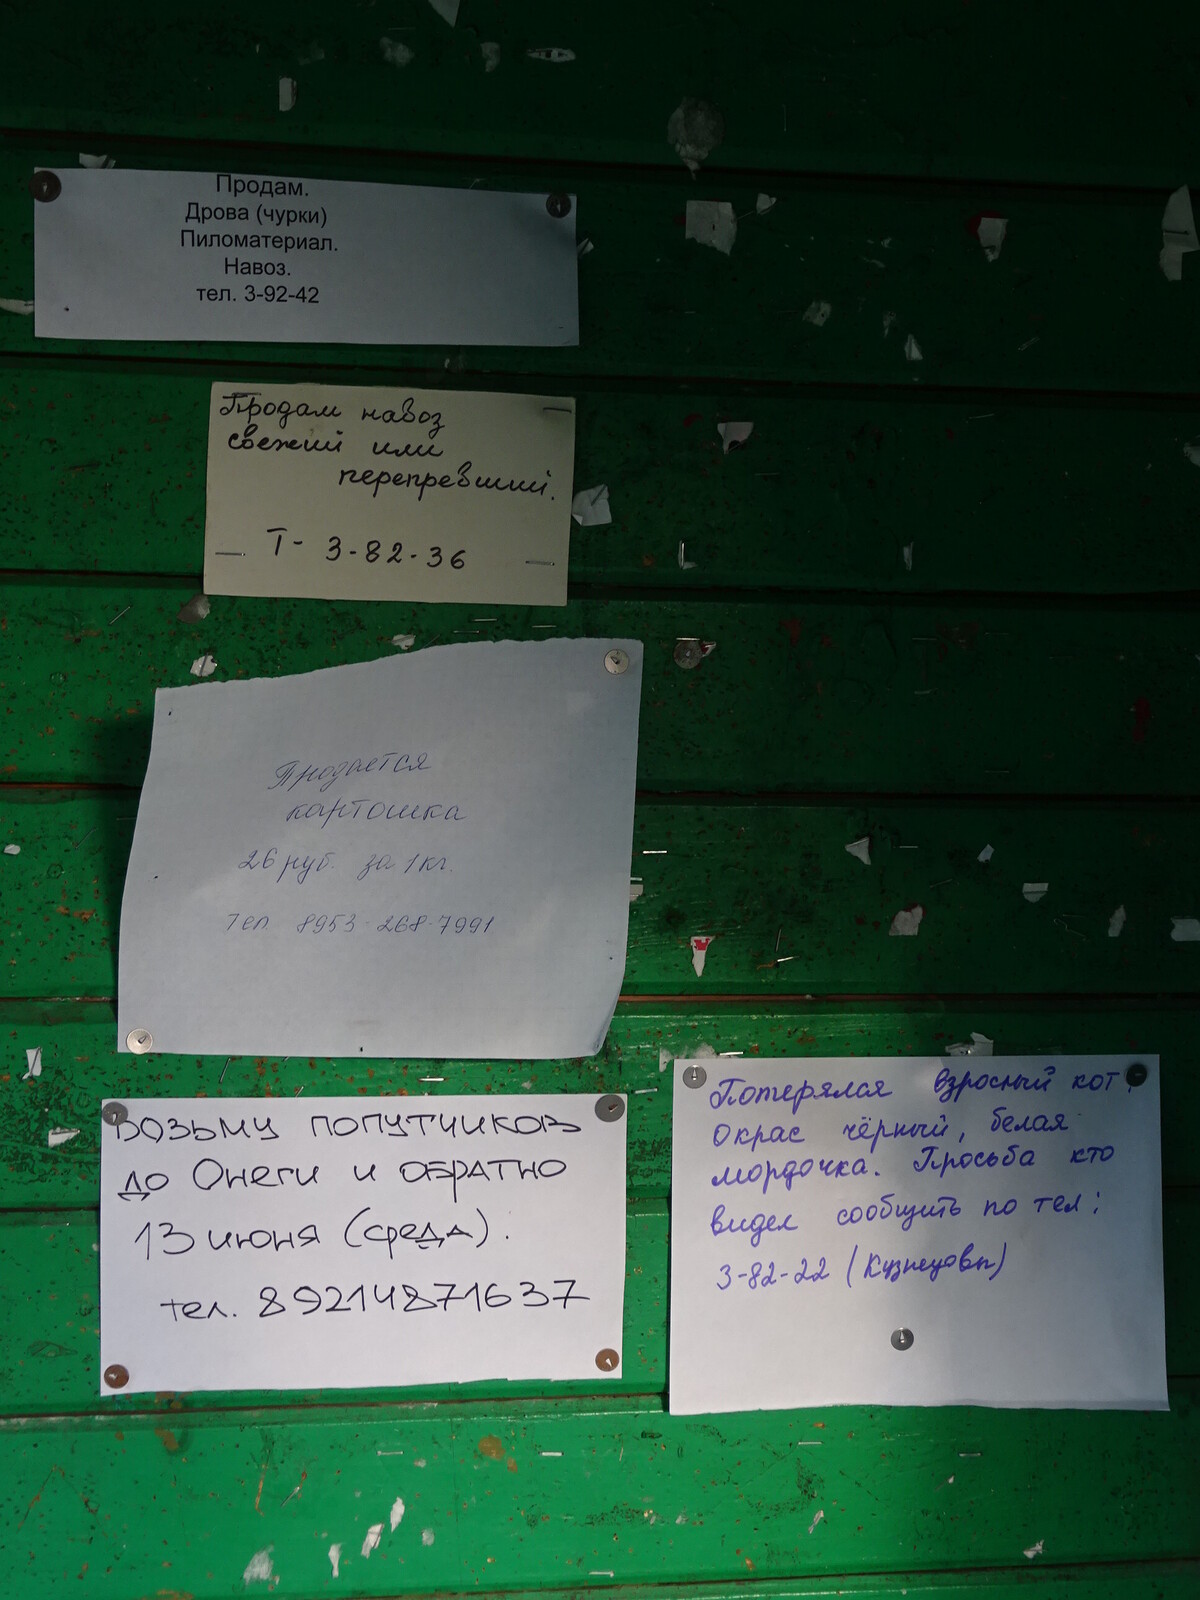 Продам.
Дрова (чурки)
Пиломатериал.
Навоз.
тел. 3-92-42
Продам навоз
свежий или
перепревший.
Т- 3-82-36
Продается
картошка
26 руб. за 1 кг.
тел 8953-268-7991
ВОЗЬМУ ПОПУТЧИКОВ
ДО ОНЕГИ И ОБРАТНО
13 июня (среда).
тел. 89214871637
Потерялся взросный кот,
Окрас чёрный, белая
мордочка. Просьба кто
видел сообщить по тел:
3-82-22 (Кузнецовы)